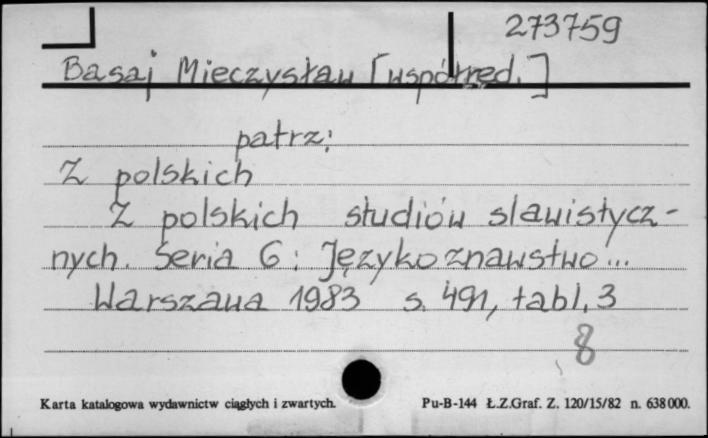 273759
Basaj Mieczysław [współred.]
patrz:
Z polskich
Z polskich studiów slawistycz-
nych. Seria 6: Językoznawstwo...
Warszawa 1983 s. 491, tabl. 3
8
Karta katalogowa wydawnictw ciągłych i zwartych. Pu-B-144 Ł.Z.Graf. Z. 120/15/82 n. 638000.